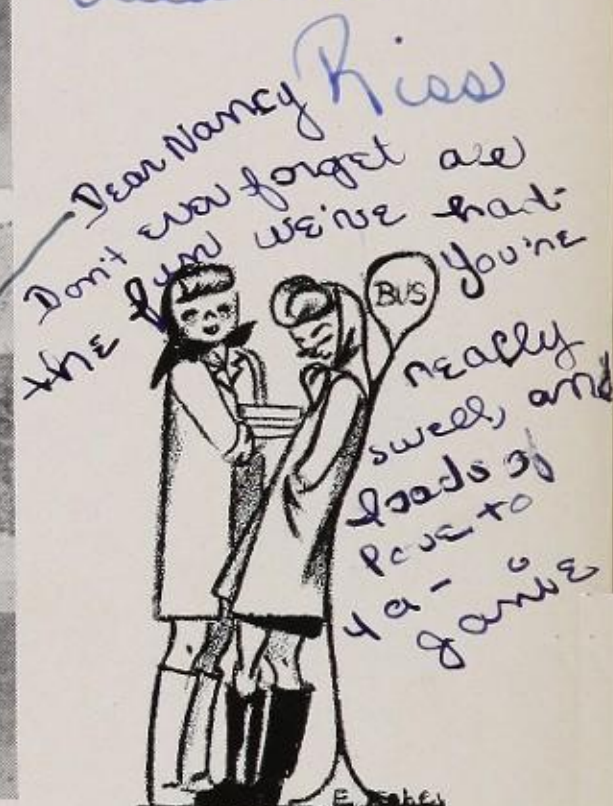 Riss
Dear Nancy
Don't ever forget all
the fun we've had -
You're
really
swell, and
loads of
love to
ya -
Janie
BUS
E